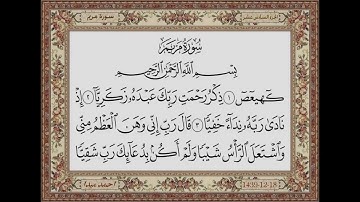 سورة مريم
الجزء السادس عشر
سُورَةُ مَرْيَمَ
بِسْمِ اللَّهِ الرَّحْمَٰنِ الرَّحِيمِ
كٓهيعٓصٓ ١ ذِكْرُ رَحْمَتِ رَبِّكَ عَبْدَهُۥ زَكَرِيَّآ ٢ إِذْ
نَادَىٰ رَبَّهُۥ نِدَآءً خَفِيًّا ٣ قَالَ رَبِّ إِنِّى وَهَنَ ٱلْعَظْمُ مِنِّى
وَٱشْتَعَلَ ٱلرَّأْسُ شَيْبًا وَلَمْ أَكُنۢ بِدُعَآئِكَ رَبِّ شَقِيًّا
1439-12-18